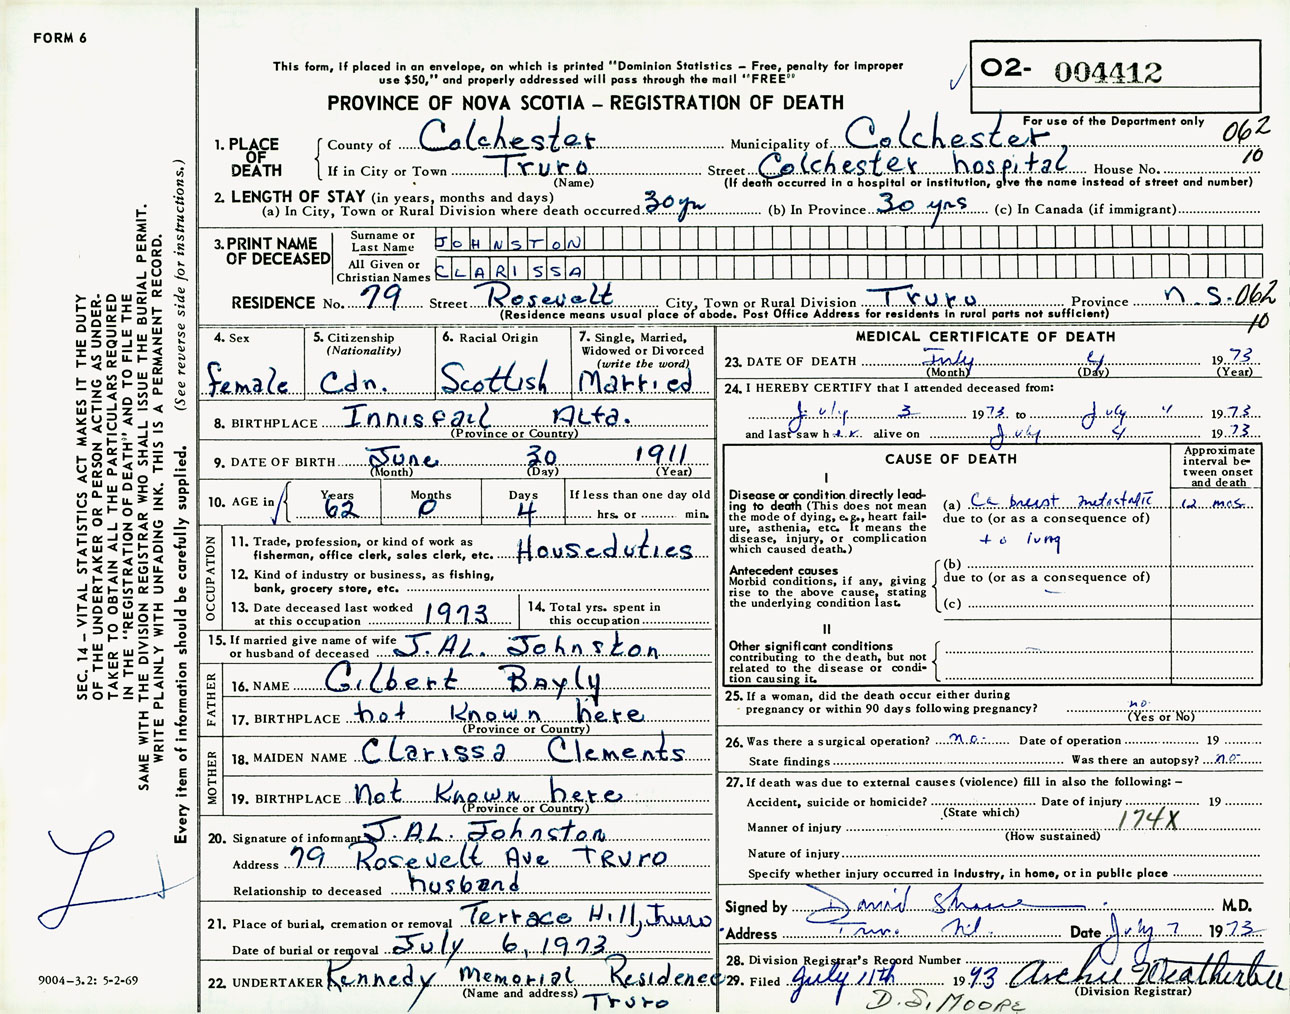 FORM 6
This form, if placed in an envelope, on which is printed "Dominion Statistics – Free, penalty for improper
use $50," and properly addressed will pass through the mail "FREE"
O2- 004412
For use of the Department only
PROVINCE OF NOVA SCOTIA – REGISTRATION OF DEATH
062
10
1. PLACE OF DEATH
County of Colchester Municipality of Colchester
If in City or Town Truro Street Colchester hospital House No.
(Name) (If death occurred in a hospital or institution, give the name instead of street and number)
2. LENGTH OF STAY (in years, months and days)
(a) In City, Town or Rural Division where death occurred 30 yrs (b) In Province 30 yrs (c) In Canada (if immigrant)
3. PRINT NAME OF DECEASED
Surname or Last Name JOHNSTON
All Given or Christian Names CLARISSA
RESIDENCE No. 79 Street Rosevelt City, Town or Rural Division Truro Province N.S. 062
(Residence means usual place of abode. Post Office Address for residents in rural parts not sufficient)
10
4. Sex
female
5. Citizenship
(Nationality)
Cdn.
6. Racial Origin
Scottish
7. Single, Married,
Widowed or Divorced
(write the word)
Married
8. BIRTHPLACE Innisfail Alta.
(Province or Country)
9. DATE OF BIRTH June 30 1911
(Month) (Day) (Year)
10. AGE in
Years Months Days If less than one day old
62 0 4 hrs. or min.
OCCUPATION
11. Trade, profession, or kind of work as
fisherman, office clerk, sales clerk, etc. Houseduties
12. Kind of industry or business, as fishing,
bank, grocery store, etc.
13. Date deceased last worked
at this occupation 1973
14. Total yrs. spent in
this occupation
15. If married give name of wife
or husband of deceased J. AL. Johnston
FATHER
16. NAME Gilbert Bayly
17. BIRTHPLACE not Known here
(Province or Country)
MOTHER
18. MAIDEN NAME Clarissa Clements
19. BIRTHPLACE Not Known here
(Province or Country)
20. Signature of informant J. AL. Johnston
Address 79 Rosevelt Ave TRURO
Relationship to deceased husband
21. Place of burial, cremation or removal Terrace Hill, Truro
Date of burial or removal July 6, 1973
22. UNDERTAKER Kennedy Memorial Residence
(Name and address) Truro
MEDICAL CERTIFICATE OF DEATH
23. DATE OF DEATH July 4 1973
(Month) (Day) (Year)
24. I HEREBY CERTIFY that I attended deceased from:
July 3 1973 to July 4 1973
and last saw her alive on July 4 1973
CAUSE OF DEATH
Approximate
interval be-
tween onset
and death
I
Disease or condition directly lead-
ing to death (This does not mean
the mode of dying, e.g., heart fail-
ure, asthenia, etc. It means the
disease, injury, or complication
which caused death.)
(a) Ca breast metastatic 12 mos.
due to (or as a consequence of)
to lung
Antecedent causes
Morbid conditions, if any, giving
rise to the above cause, stating
the underlying condition last.
(b)
due to (or as a consequence of)
(c)
II
Other significant conditions
contributing to the death, but not
related to the disease or condi-
tion causing it.
25. If a woman, did the death occur either during
pregnancy or within 90 days following pregnancy? no
(Yes or No)
26. Was there a surgical operation? no. Date of operation 19
State findings Was there an autopsy? no
27. If death was due to external causes (violence) fill in also the following: –
Accident, suicide or homicide? Date of injury 19
(State which)
Manner of injury 174X
(How sustained)
Nature of injury
Specify whether injury occurred in industry, in home, or in public place
Signed by David M.D.
Address Date July 7 1973
28. Division Registrar's Record Number
29. Filed July 11th 1973 Archie Weatherbee
(Division Registrar)
D. S. MOORE
SEC. 14 – VITAL STATISTICS ACT MAKES IT THE DUTY
OF THE UNDERTAKER OR PERSON ACTING AS UNDER-
TAKER TO OBTAIN ALL THE PARTICULARS REQUIRED
IN THE "REGISTRATION OF DEATH" AND TO FILE THE
SAME WITH THE DIVISION REGISTRAR WHO SHALL ISSUE THE BURIAL PERMIT.
WRITE PLAINLY WITH UNFADING INK. THIS IS A PERMANENT RECORD.
Every item of information should be carefully supplied. (See reverse side for instructions.)
9004-3.2: 5-2-69